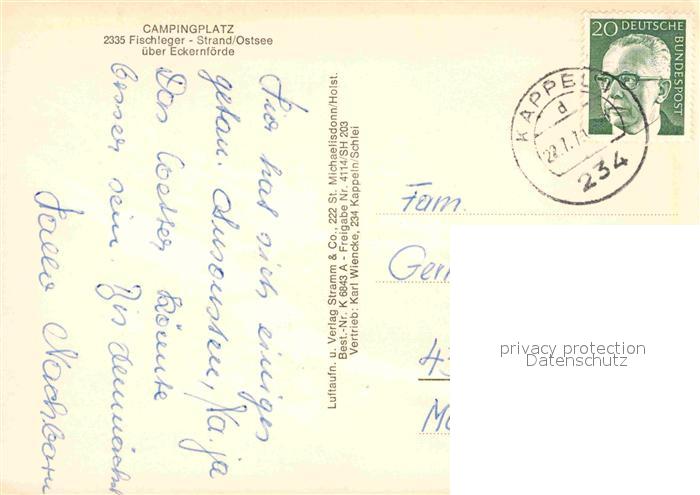 CAMPINGPLATZ
2335 Fischleger - Strand/Ostsee
über Eckernförde
Hallo Nachbarn
Hier hat sich einiges
getan. Ansonsten, Na ja
Das Wetter könnte
besser sein. Bis demnächst
Luftaufn. u. Verlag Stramm & Co., 222 St. Michaelisdonn/Holst.
Best.-Nr. K 6843 A - Freigabe Nr. 4114/SH 203
Vertrieb: Karl Wiencke, 234 Kappeln/Schlei
20 DEUTSCHE
BUNDESPOST
KAPPELN
d
234
Fam.
privacy protection
Datenschutz